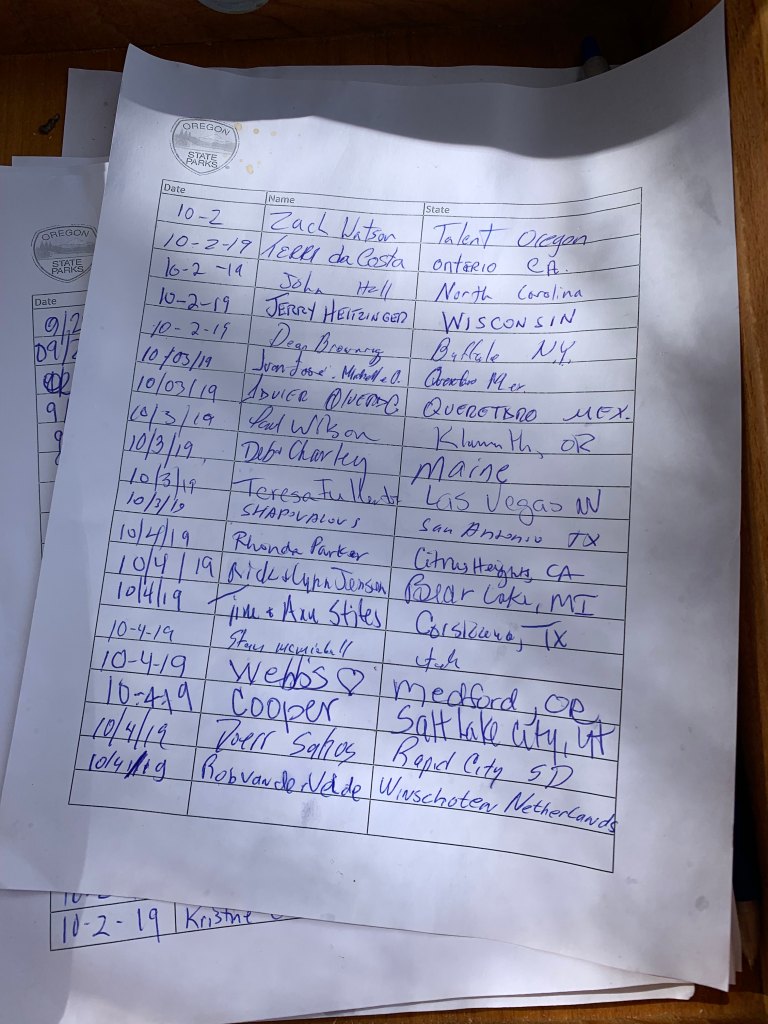 OREGON
STATE
PARKS
Date Name State
10-2 Zach Watson Talent Oregon
10-2-19 TERRI da Costa ONTARIO CA.
10-2-19 John Hall North Carolina
10-2-19 JERRY HEITZINGER WISCONSIN
10-2-19 Dean Browning Buffalo N.Y.
10/03/19 Juan José Mex
10/03/19 QUERETARO MEX.
10/3/19 Paul Wilson Klamath, OR
10/3/19 Deba Charley Maine
10/3/19 Teresa Las Vegas NV
10/3/19 SHAPOVALOVS San Antonio TX
10/4/19 Rhonda Parker Citrus Heights, CA
10/4/19 Rick & Lynn Jensen Bear Lake, MI
10/4/19 & Ann Stiles Corsicana, TX
10-4-19 Utah
10-4-19 Webbs ♡ Medford, OR
10-4-19 Cooper Salt Lake City, UT
10/4/19 Rapid City SD
10/4/19 Rob van de Velde Winschoten Netherlands
OREGON
STATE
PARKS
Date
9/2
09/2
9
10-2-19 Kristine